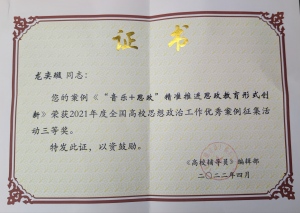 证书
同志：
您的案例《“音乐+思政”精准推进思政教育形式创
新》荣获2021年度全国高校思想政治工作优秀案例征集活
动三等奖。
特发此证，以资鼓励。
《高校辅导员》编辑部
二〇二二年四月